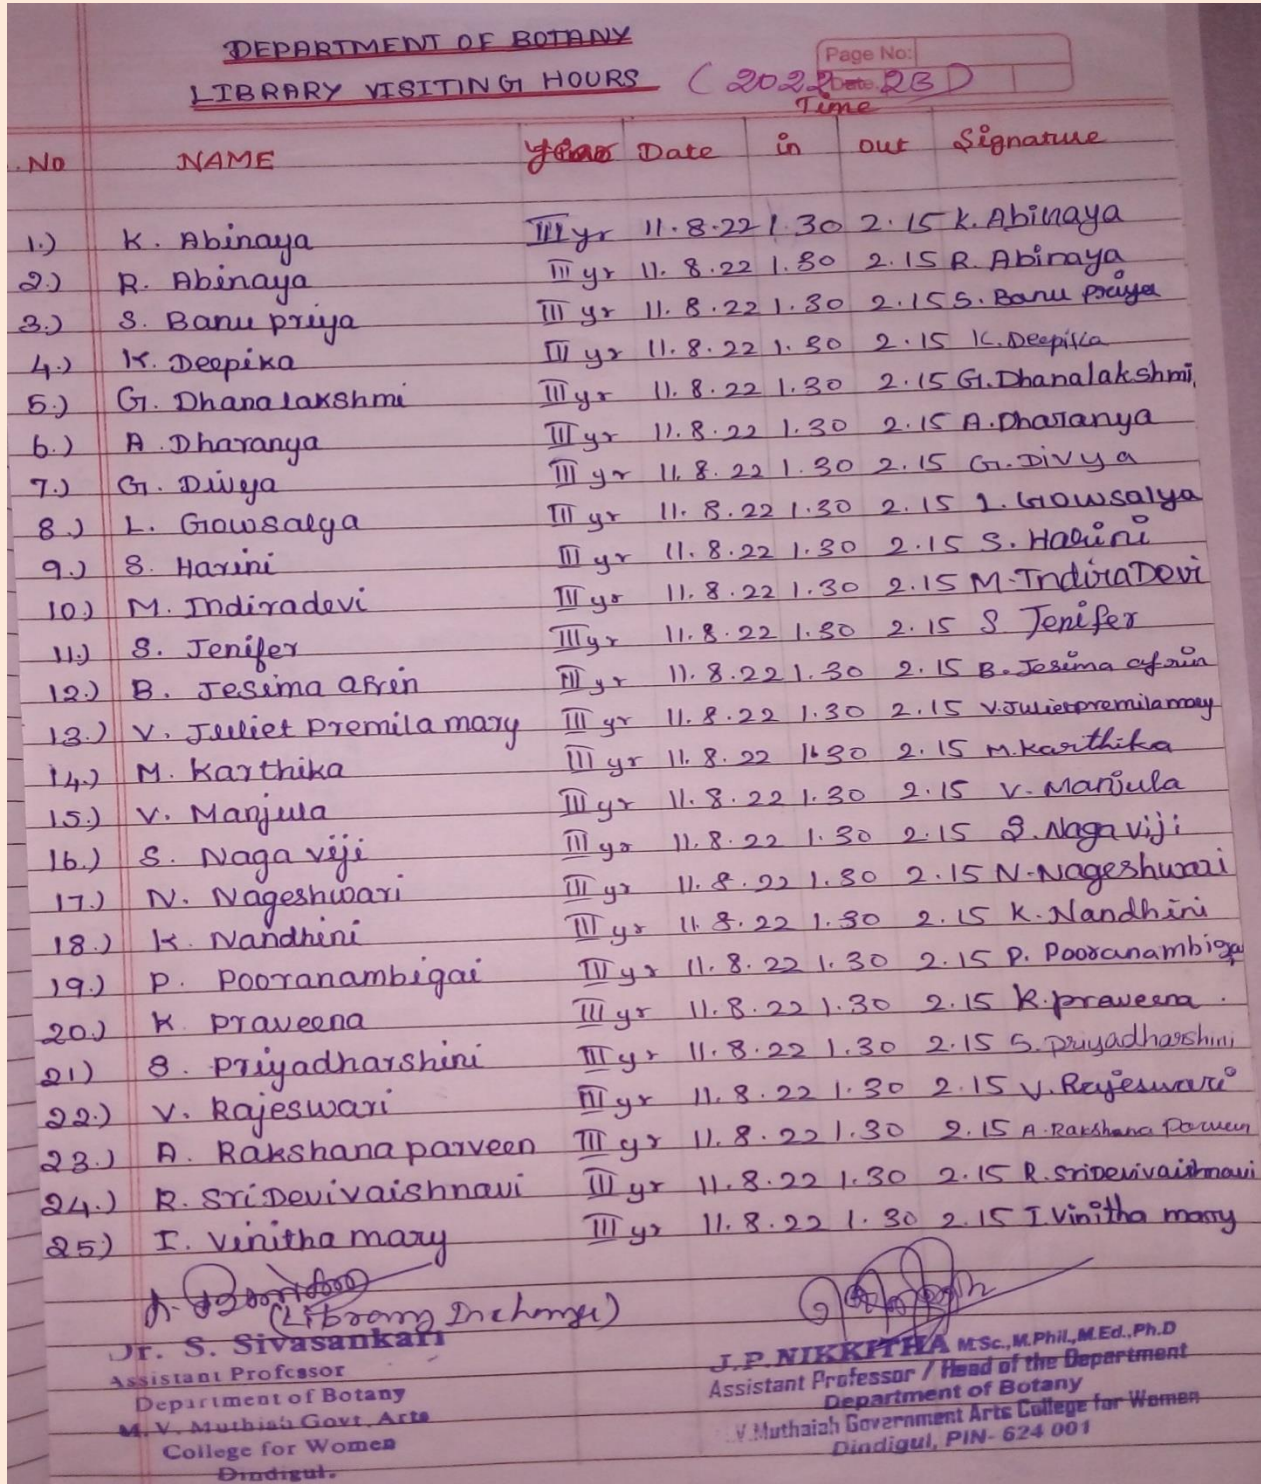 DEPARTMENT OF BOTANY
Page No:
LIBRARY VISITING HOURS (2022-23)
Date
Time
.No NAME Year Date in out Signature
1.) K. Abinaya III yr 11.8.22 1.30 2.15 K. Abinaya
2.) R. Abinaya III yr 11.8.22 1.30 2.15 R. Abinaya
3.) S. Banu priya III yr 11.8.22 1.30 2.15 S. Banu priya
4.) K. Deepika III yr 11.8.22 1.30 2.15 K. Deepika
5.) G. Dhanalakshmi III yr 11.8.22 1.30 2.15 G. Dhanalakshmi
6.) A. Dharanya III yr 11.8.22 1.30 2.15 A. Dharanya
7.) G. Divya III yr 11.8.22 1.30 2.15 G. Divya
8.) L. Gowsalya III yr 11.8.22 1.30 2.15 L. Gowsalya
9.) S. Harini III yr 11.8.22 1.30 2.15 S. Harini
10.) M. Indiradevi III yr 11.8.22 1.30 2.15 M. IndiraDevi
11.) S. Jenifer III yr 11.8.22 1.30 2.15 S. Jenifer
12.) B. Jesima Afrin III yr 11.8.22 1.30 2.15 B. Jesima afrin
13.) V. Juliet premila mary III yr 11.8.22 1.30 2.15 V. Julietpremilamary
14.) M. Karthika III yr 11.8.22 1.30 2.15 M. Karthika
15.) V. Manjula III yr 11.8.22 1.30 2.15 V. Manjula
16.) S. Naga viji III yr 11.8.22 1.30 2.15 S. Naga viji
17.) N. Nageshwari III yr 11.8.22 1.30 2.15 N. Nageshwari
18.) K. Nandhini III yr 11.8.22 1.30 2.15 K. Nandhini
19.) P. Pooranambigai III yr 11.8.22 1.30 2.15 P. Pooranambigai
20.) K. Praveena III yr 11.8.22 1.30 2.15 K. praveena
21) S. Priyadharshini III yr 11.8.22 1.30 2.15 S. priyadharshini
22.) V. Rajeswari III yr 11.8.22 1.30 2.15 V. Rajeswari
23.) A. Rakshana parveen III yr 11.8.22 1.30 2.15 A. Rakshana Parveen
24.) R. SriDevivaishnavi III yr 11.8.22 1.30 2.15 R. SriDevivaishnavi
25.) I. Vinitha mary III yr 11.8.22 1.30 2.15 I. Vinitha mary
(Library Incharge)
Dr. S. Sivasankari
Assistant Professor
Department of Botany
M. V. Muthiah Govt. Arts
College for Women
Dindigul.
J.P.NIKKITHA M.Sc.,M.Phil.,M.Ed.,Ph.D
Assistant Professor / Head of the Department
Department of Botany
V.Muthaiah Government Arts College for Women
Dindigul, PIN- 624 001